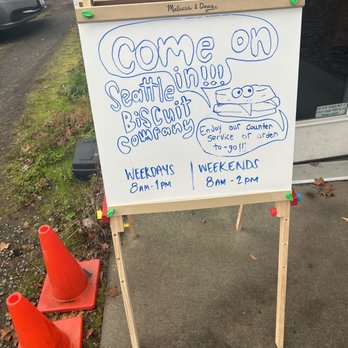 Melissa & Doug
Come on
in!!!
Seattle
Biscuit
Company
Enjoy our counter
service or order
to-go!!!
WEEKDAYS
8AM-1PM
WEEKENDS
8AM-2PM